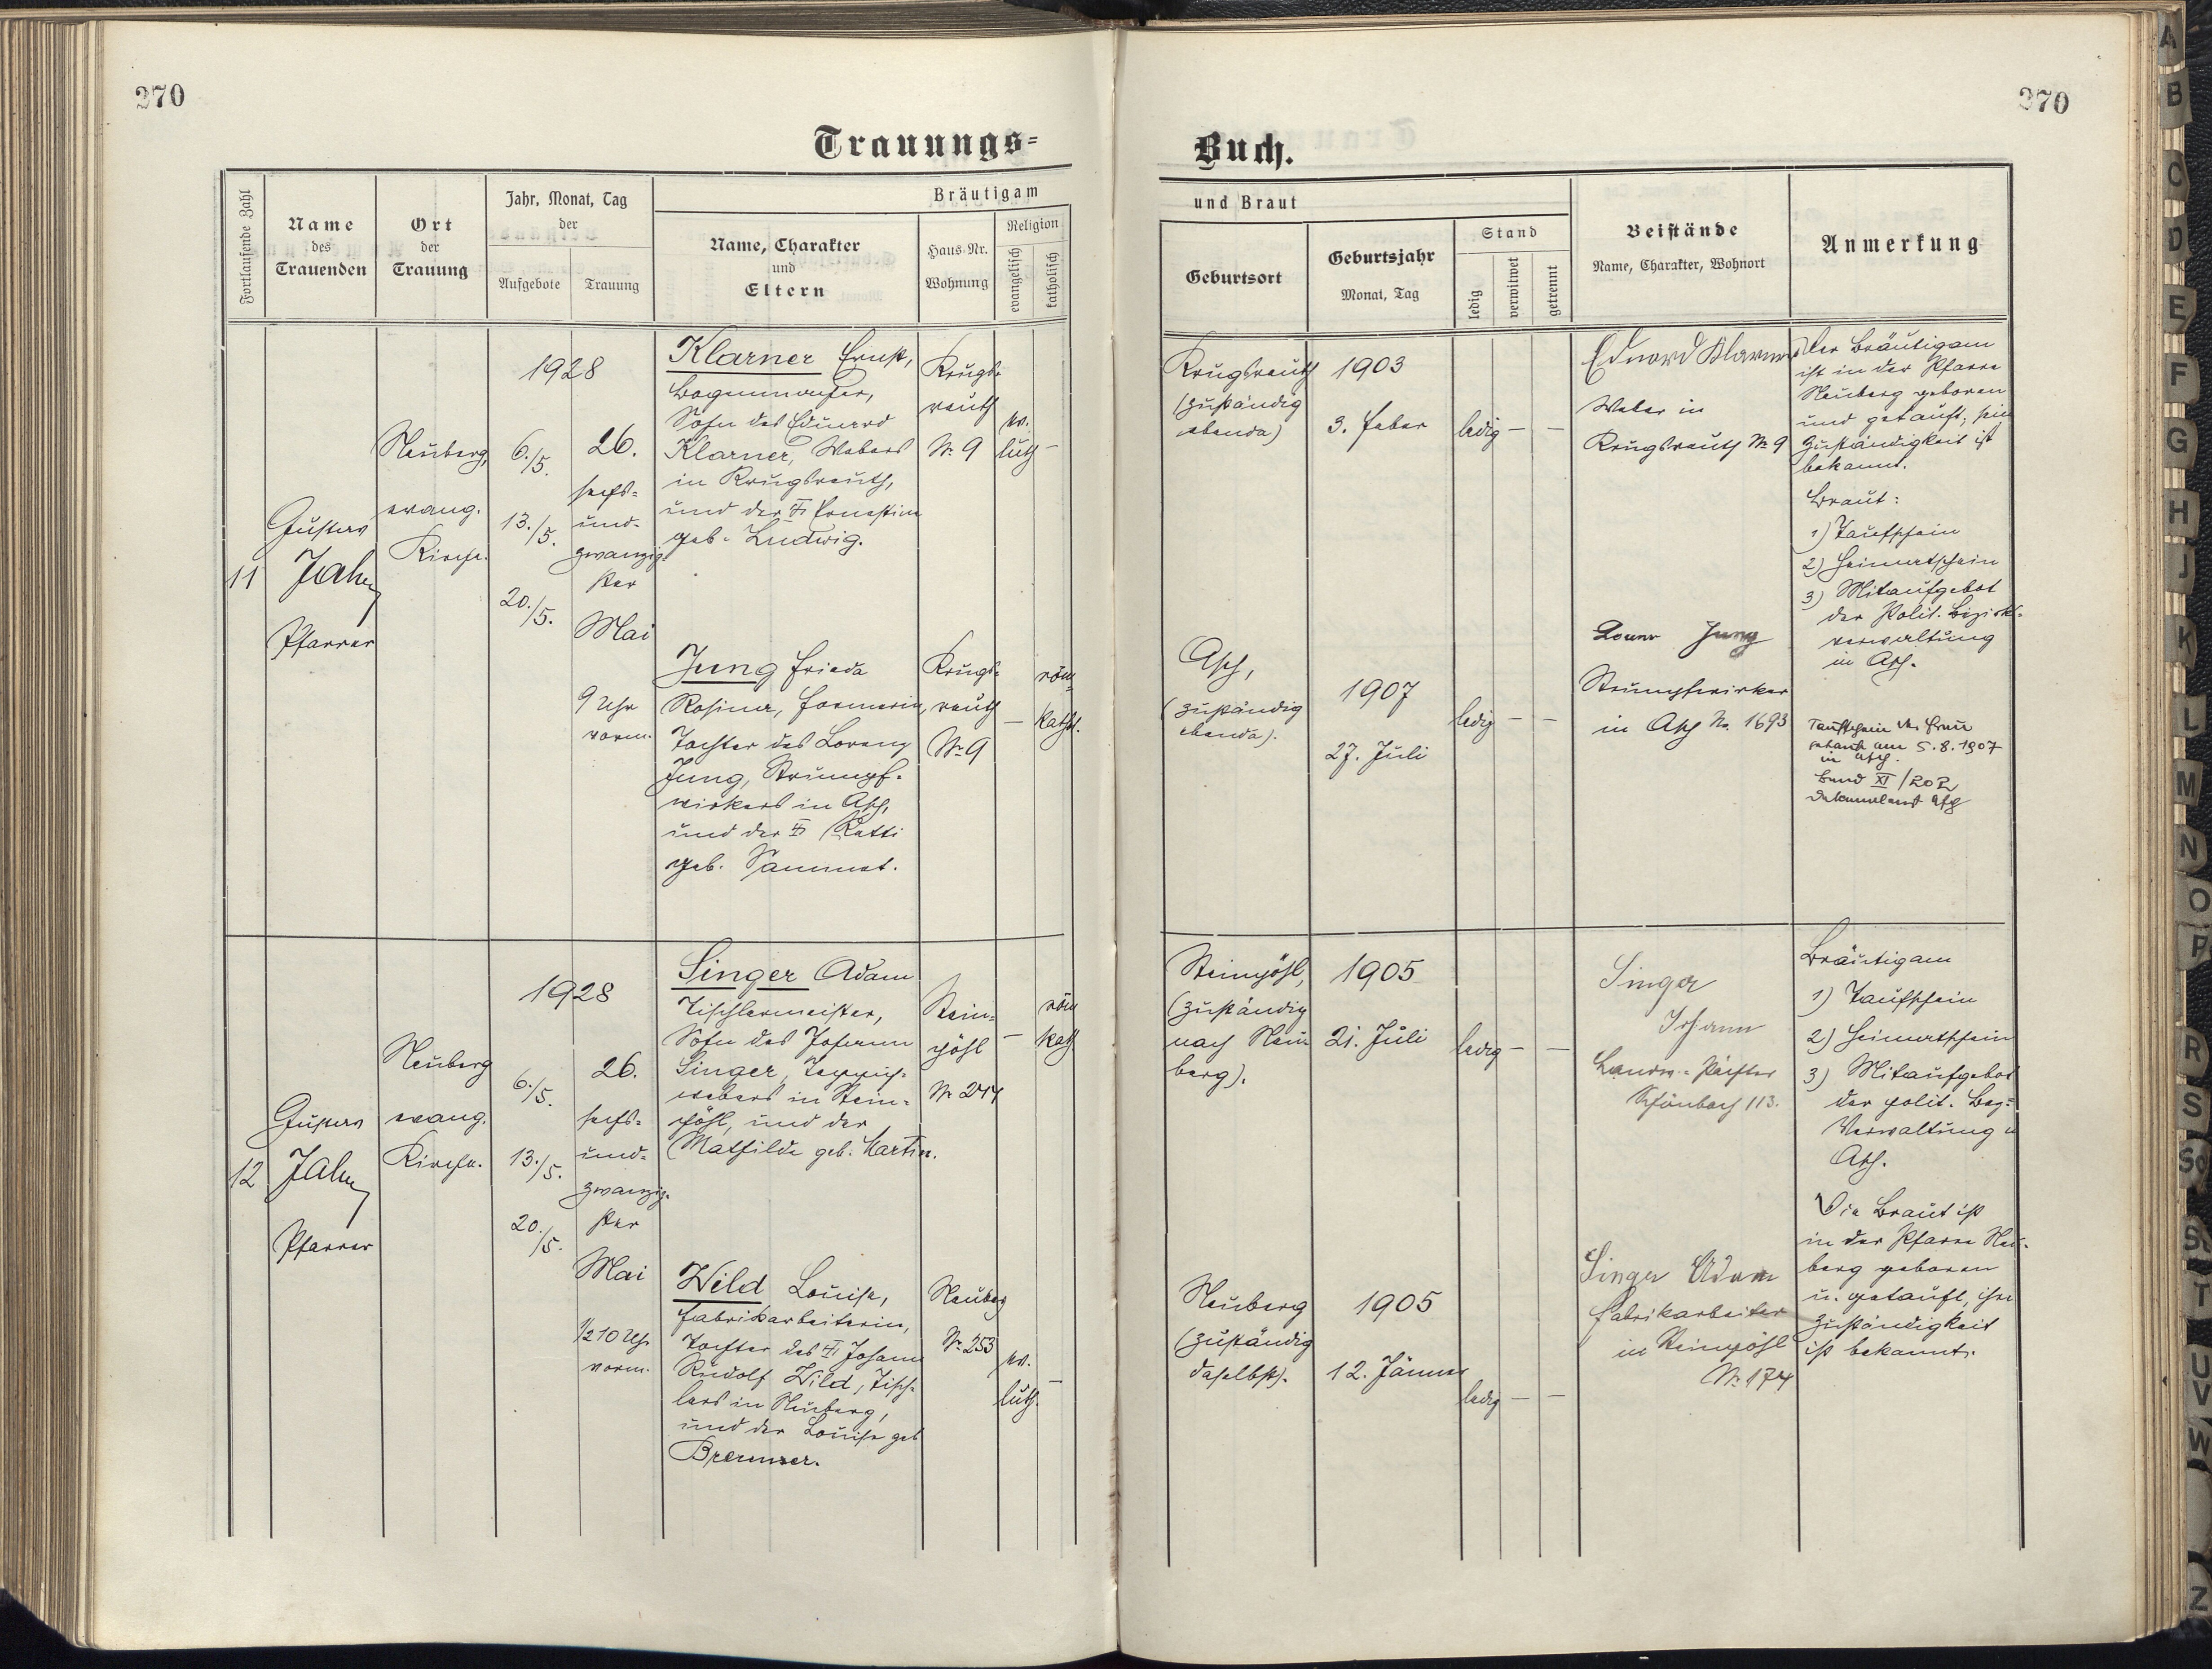 270
270
Trauungs=
Buch.
Fortlaufende Zahl
Name
des
Trauenden
Ort
der
Trauung
Jahr, Monat, Tag
der
Aufgebote
Trauung
Bräutigam
Name, Charakter
und
Eltern
Haus-Nr.
Wohnung
Religion
evangelisch
katholisch
und Braut
Geburtsort
Geburtsjahr
Monat, Tag
Stand
ledig
verwitwet
getrennt
Beistände
Name, Charakter, Wohnort
Anmerkung
11
Gustav
Jahn
Pfarrer
Neuberg,
evang.
Kirche.
1928
6./5.
13./5.
20./5.
26.
sechs=
und=
zwanzig=
ster
Mai
9 Uhr
vorm.
Klarner Ernst,
Sohn des Eduard
Klarner, Webers
in Krugsreuth,
und der Ernestine
geb. Ludwig.
Krugs=
reuth
Nr. 9
ev.
luth –
Jung Frieda
Rosina, Formerin,
Tochter des Lorenz
Jung, Strumpf=
wirkers in Asch,
und der Katti
geb. Sammet.
Krugs=
reuth
Nr. 9
röm.
– kathl.
Krugsreuth
(zuständig
ebenda)
1903
3. Feber
ledig – –
Eduard Klarner
Weber in
Krugsreuth Nr. 9
Der Bräutigam
ist in der Pfarre
Neuberg geboren
und getauft, sein
Zuständigkeit ist
bekannt.
Braut:
1) Taufschein
2) Heimatschein
3) Mitaufgebot
der Polit. Bezirks=
verwaltung
in Asch.
Asch,
(zuständig
ebenda).
1907
27. Juli
ledig – –
Jung
Strumpfwirker
in Asch No. 1693
Taufschein der Frau
getauft am 5.8.1907
in Asch.
Band XI/202
Dekanalamt Asch
12
Gustav
Jahn
Pfarrer
Neuberg
evang.
Kirche.
1928
6./5.
13./5.
20./5.
26.
sechs=
und=
zwanzig=
ster
Mai
1/2 10 Uhr
vorm.
Singer Adam
Tischlermeister,
Sohn des Johann
Singer, Teppich=
webers in Stein=
pöhl, und der
Mathilde geb. Martin.
Stein=
pöhl
Nr. 244
röm
– kath
Wild Louise,
Fabrikarbeiterin,
Tochter des Johann
Rudolf Wild, Tisch=
lers in Neuberg,
und der Louise geb
Neuberg
Nr. 253
ev. –
luth.
Steinpöhl,
(zuständig
nach Neu
berg).
1905
21. Juli
ledig – –
Singer
Johann
Landw.-Pächter
Schönbach 113.
Bräutigam
1) Taufschein
2) Heimatschein
3) Mitaufgebot
der polit. Bez=
Verwaltung
Asch.
Die Braut ist
in der Pfarre Neu=
berg geboren
u. getauft, ihre
Zuständigkeit
ist bekannt.
Neuberg
(zuständig
daselbst).
1905
12. Jänner
ledig – –
Singer Adam
Fabrikarbeiter
in Steinpöhl
Nr. 174
A
B
C
D
E
F
G
H
J
K
L
M
N
O
P
R
S
T
U
V
W
Z